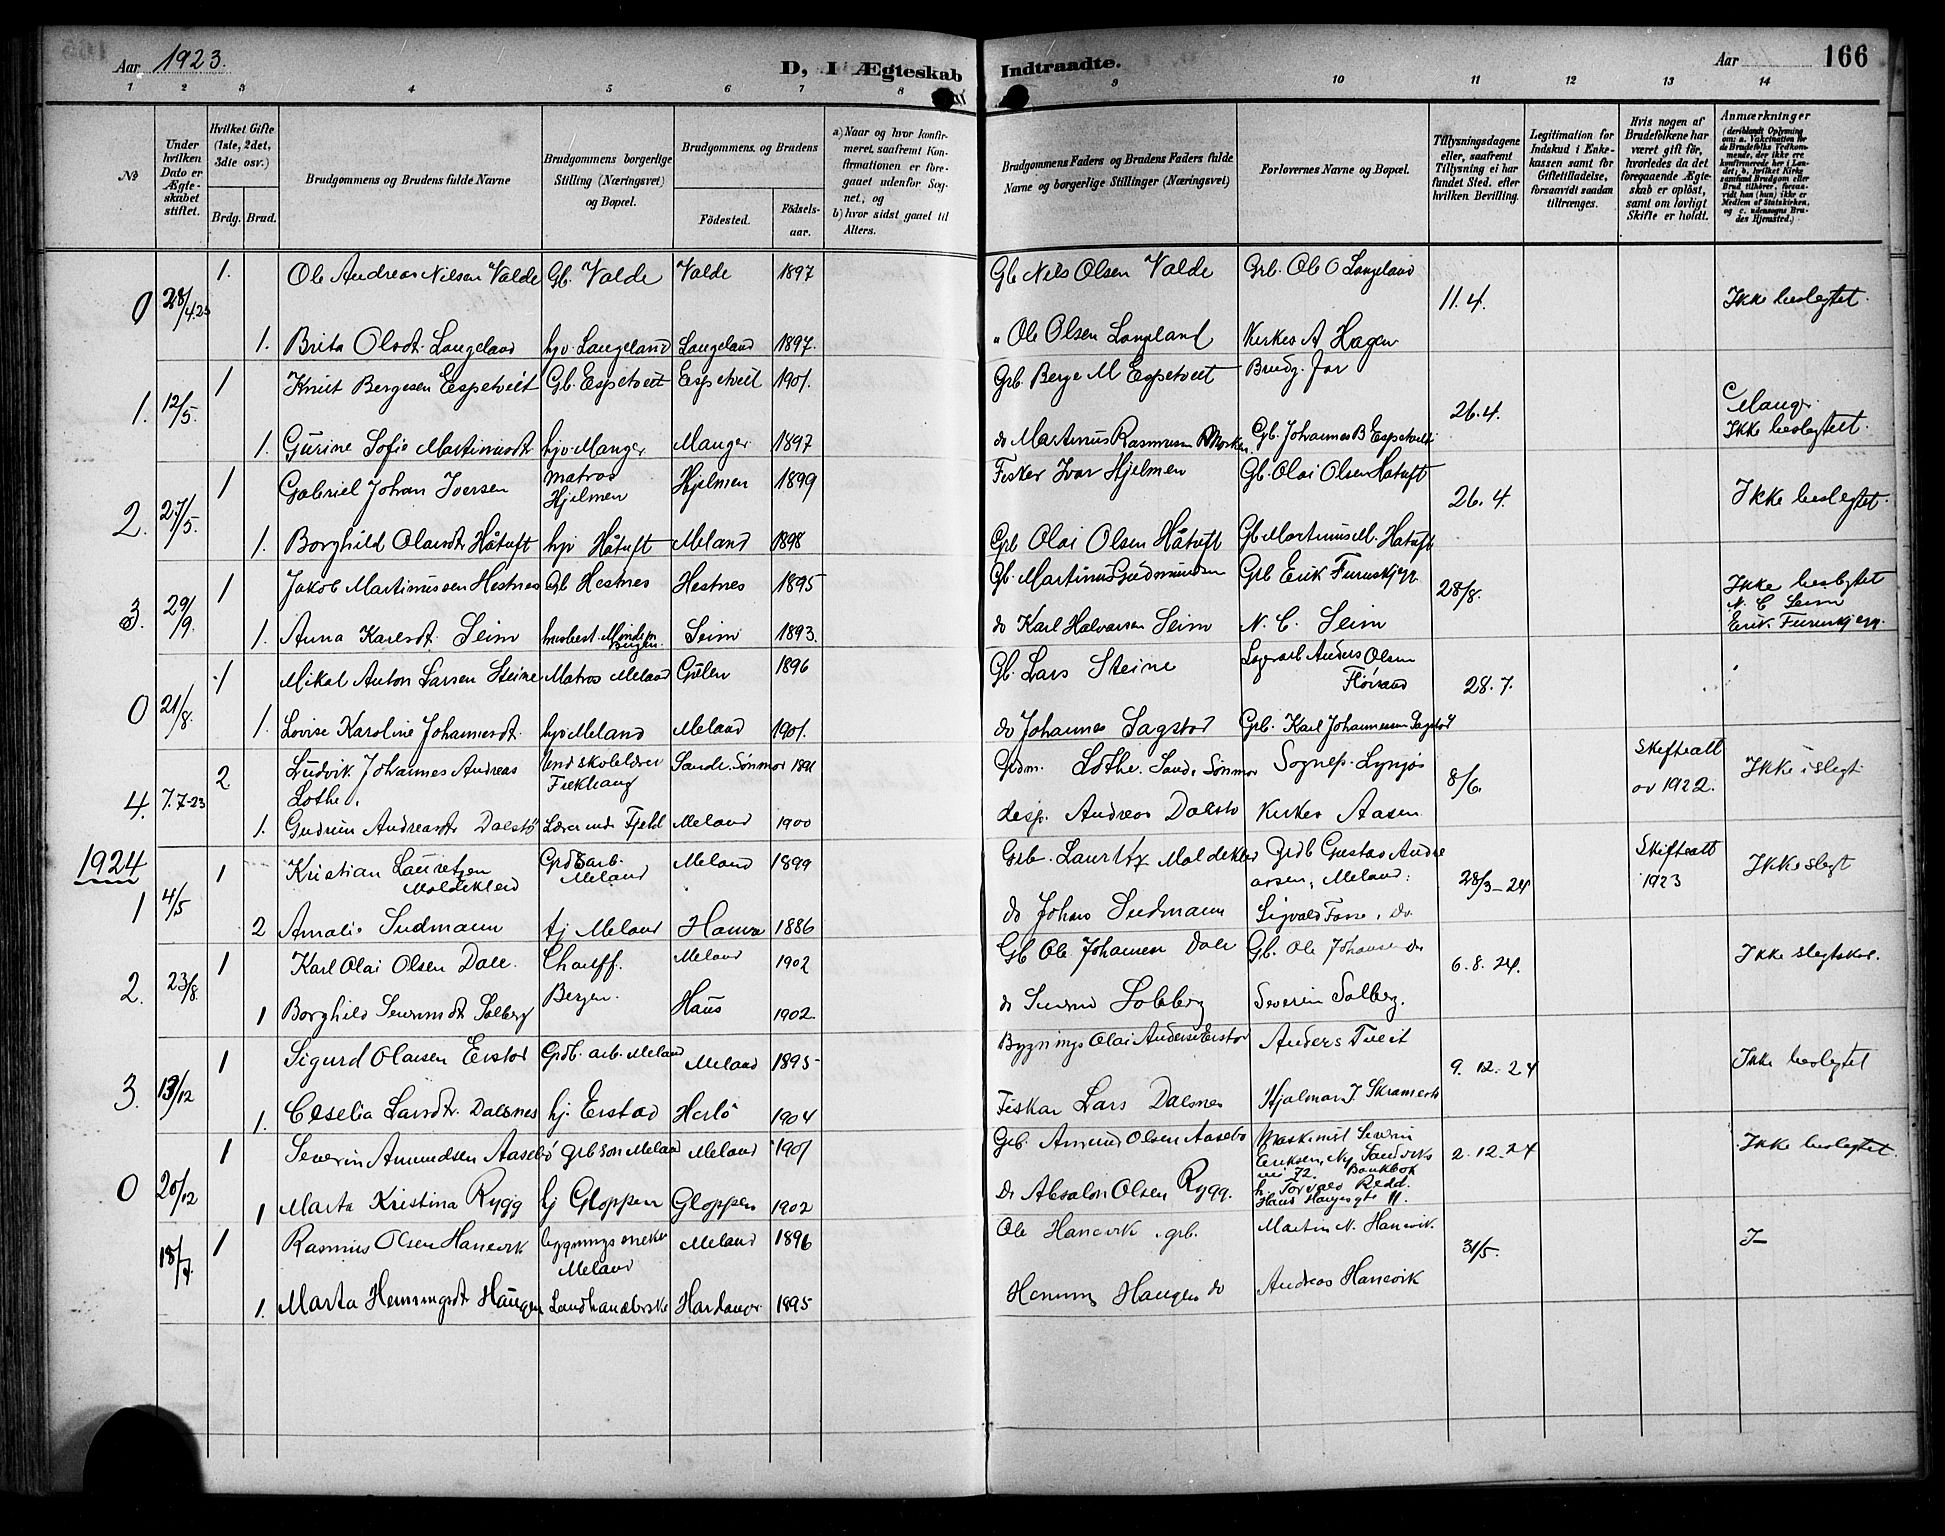 Aar 1923.
D, I Ægteskab Indtraadte.
Aar 166
1 2 3 4 5 6 7 8 9 10 11 12 13 14
No
Under hvilken Dato er Ægteskabet stiftet.
Hvilket Gifte (1ste, 2det, 3die osv.)
Brdg. Brud.
Brudgommens og Brudens fulde Navne
Brudgommens borgerlige Stilling (Næringsvei) og Bopæl.
Brudgommens, og Brudens
Födested. Födsels-aar.
a) Naar og hvor konfirmeret, saafremt Konfirmationen er foregaaet udenfor Sognet, og
b) hvor sidst gaaet til Alters.
Brudgommens Faders og Brudens Faders fulde Navne og borgerlige Stillinger (Næringsvei)
Forlovernes Navne og Bopæl.
Tillysningsdagene eller, saafremt Tillysning ei har fundet Sted, efter hvilken Bevilling.
Legitimation for Indskud i Enkekassen samt for Giftetilladelse, forsaavidt saadan tiltrænges.
Hvis nogen af Brudefolkene har været gift för, hvorledes da det foregaaende Ægteskab er oplöst, samt om lovligt Skifte er holdt.
Anmærkninger
(deriblandt Oplysning om: a. Vakcination for de Brudefolks Vedkommende, der ikke ere konfirmerede her i Landet; b. hvilket Kirkesamfund Brudgom eller Brud tilhörer, forsaavidt han (hun) ikke er Medlem af Statskirken, og c. udensogns Brudes Hjemsted.)
0 28/4.23 1. Ole Andreas Nilsen Valde Gb. Valde Valde 1897 Gb Nils Olsen Valde Grb. Ole O Langeland 11.4. Ikke beslegtet.
1. Brita Olsdt. Langeland hjv Langeland Langeland 1897. " Ole Olsen Langeland Kirkes A Hagen
1. 12/5. 1 Knut Bergesen Espetveit Gb. Espetveit Espetveit 1901. Grb. Berge M Espetveit Brudg. far 26.4. Manger. Ikke beslegtet.
1. Gurine Sofie Martinusdt hjv Manger Manger 1897 do Martinus Rasmussen Gb. Johannes B Espetveit
2. 27/5. 1 Gabriel Johan Iversen Matros Hjelmen Hjelmen 1899 Fisker Ivar Hjelmen Gb. Olai Olsen Hatuft 26.4. Ikke beslegtet.
1. Borghild Olaisdtr Håtuft hjv Håtuft Meland 1898 Grb Olai Olsen Håtuft Gb Martinus M. Hatuft
3. 29/9. 1 Jakob Martinussen Hestnes Gb Hestnes Hestnes 1895 Gb. Martinus Gudmundsen Grb Erik Furuskjegg 28/8. Ikke beslegtet
N. C Seim
Erik Furuskjegg.
1. Anna Karlsdt. Seim Seim 1893. do Karl Halvarsen Seim N. C. Seim
0 21/8. 1 Mikal Anton Larsen Steine Matros Meland Gulen 1896 Gb. Lars Steine Anders Olsen 28.7.
1. Lovise Karoline Johannesdt. hjv Meland Meland 1901. do Johannes Sagstad Grb. Karl Johannessen Sagstad
4. 7.7-23 2 Ludvik Johannes Andreas Lothe. Sande. Sønmør Grdm. Lothe. Sande Sønmør Sognep. Lyngos 8/6. Skifteatt av 1922. Ikke i slegt
1. Gudrun Andreasdtr Dalstø Lærerinde Fjeld Meland 1900 desp. Andreas Dalstø Kirkes Aasen
1924
1 4/5 1 Kristian Lauritzen Moldeklev Grdbarb. Meland Meland 1899 Grb. Lauritz Moldeklev Grdb Gustav Andreassen, Meland. 28/3-24 Skifteatt 1923 Ikke slegt
2 Amalie Sudmann tj Meland Hamre 1886 do Johan Sudmann Sigvald Fosse. do.
2. 23/8. 1 Karl Olai Olsen Dale. Chauff. Bergen. Meland 1902 Gb Ole Johannesen Dale Gb. Ole Johansen Dale 6.8.24. Ikke slegtskap.
1 Borghild Severinsdt Solberg Haus 1902 do Severin Solberg Severin Solberg.
3. 13/12 1 Sigurd Olaisen Erstad Grdb. arb. Meland Meland 1895 Bygnings Olai Andersen Erstad Anders Tveit 9.12.24 Ikke beslegtet
1. Ceselia Larsdtr. Dalsnes hj. Erstad Herlø 1904 Fisker Lars Dalsnes Hjalmar J. Skramestø
0 20/12 1 Severin Amundsen Aasebø Grbsøn Meland Meland 1901 Grb. Amund Olsen Aasebø Maskinist Severin Eriksen, Ny Sandviksvei 72. 2.12.24 Ikke beslegtet.
1 Marta Kristina Rygg hj Gloppen Gloppen 1902 do Absalon Olsen Rygg.
18/7. 1 Rasmus Olsen Hanevik bygningssnekker Meland Meland 1896 Ole Hanevik. grb. Martin N. Hanevik. 31/5.
1. Marta Hemmingsdt Haugen Hardanger 1895 Hemming Haugen do Andreas Hanevik